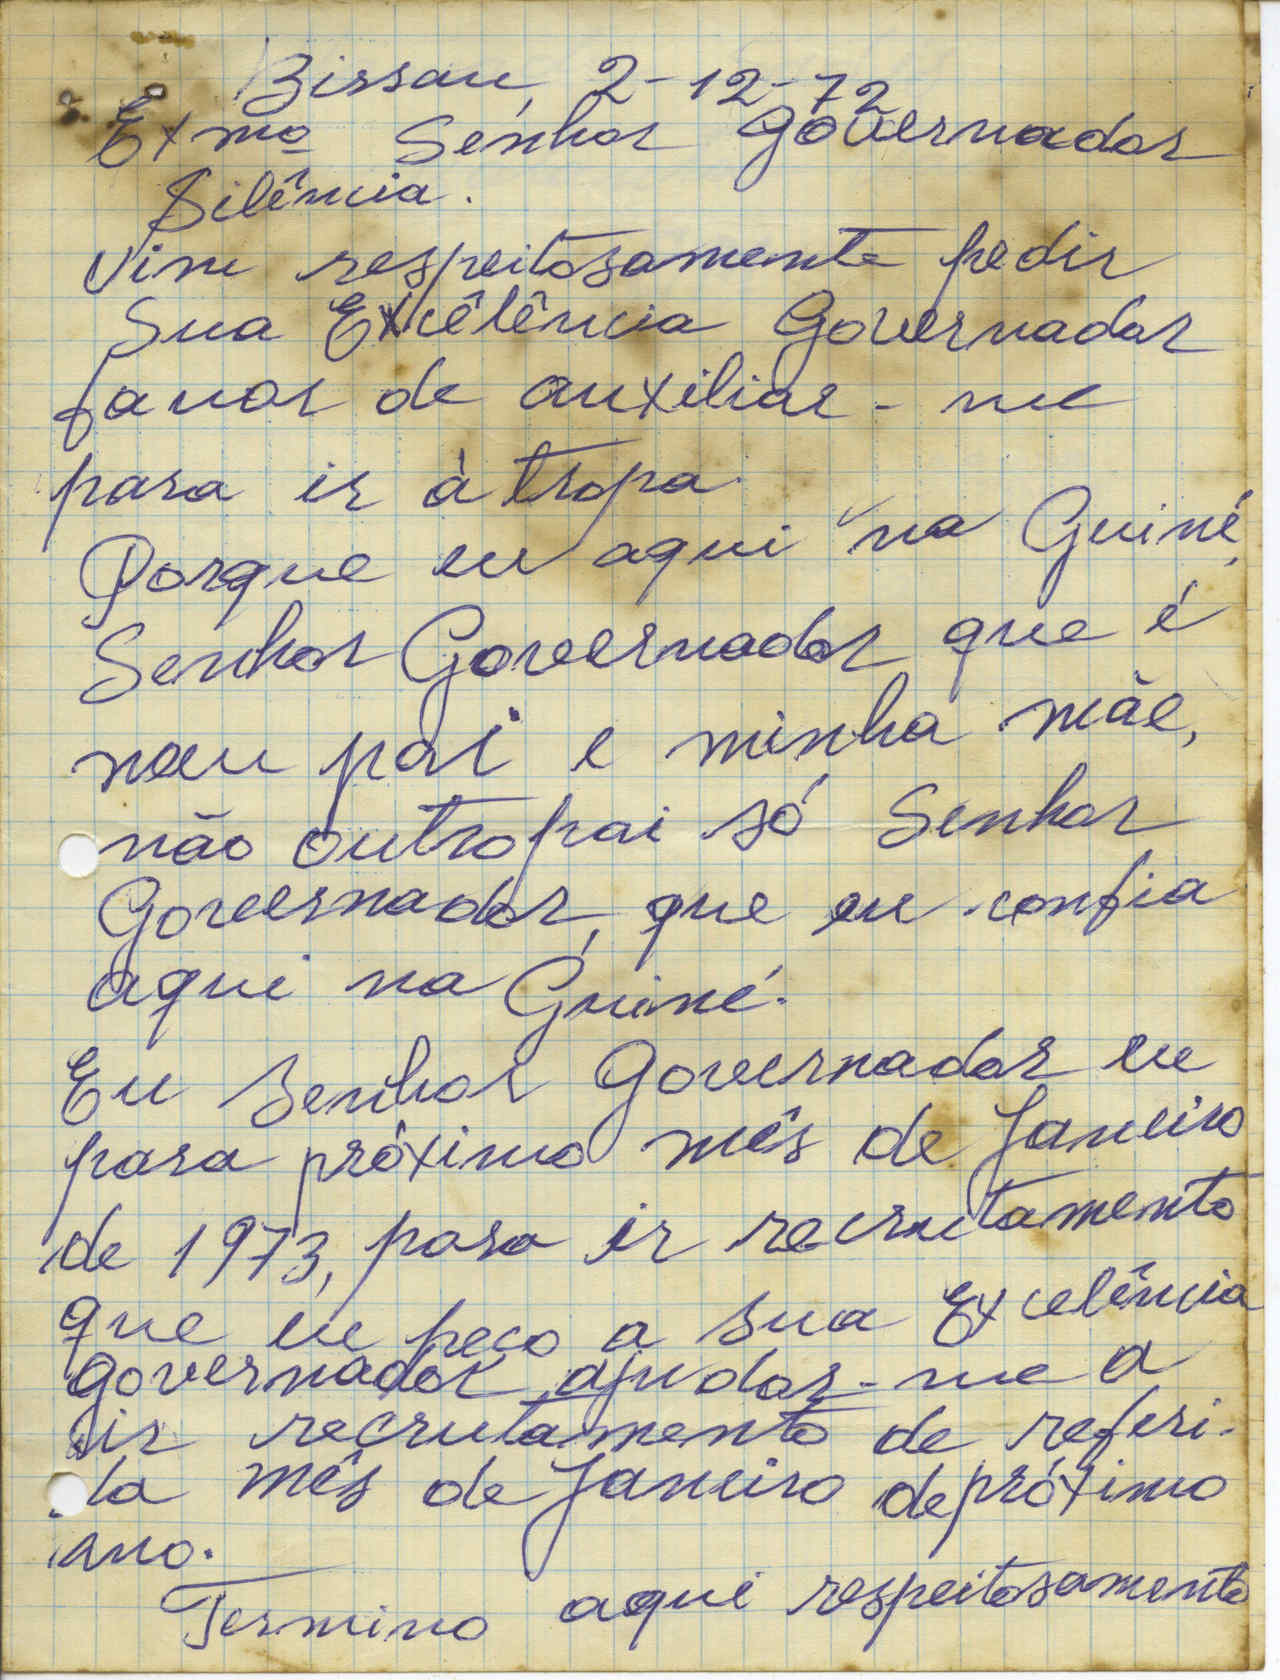 Bissau, 2-12-72
Exmo Senhor Governador
Silência.
Vim respeitosamente pedir
Sua Excêlência Governador
favor de auxiliar-me
para ir à tropa.
Porque eu aqui na Guiné,
Senhor Governador que é
meu pai e minha mãe,
não outro pai só Senhor
Governador, que eu confia
aqui na Guiné.
Eu Senhor Governador eu
para próximo mês de Janeiro
de 1973, para ir recrutamento
que eu peço a sua Excelência
governador ajudar-me a
ir recrutamento de referi-
da mês de Janeiro de próximo
ano.
Termino aqui respeitosamente